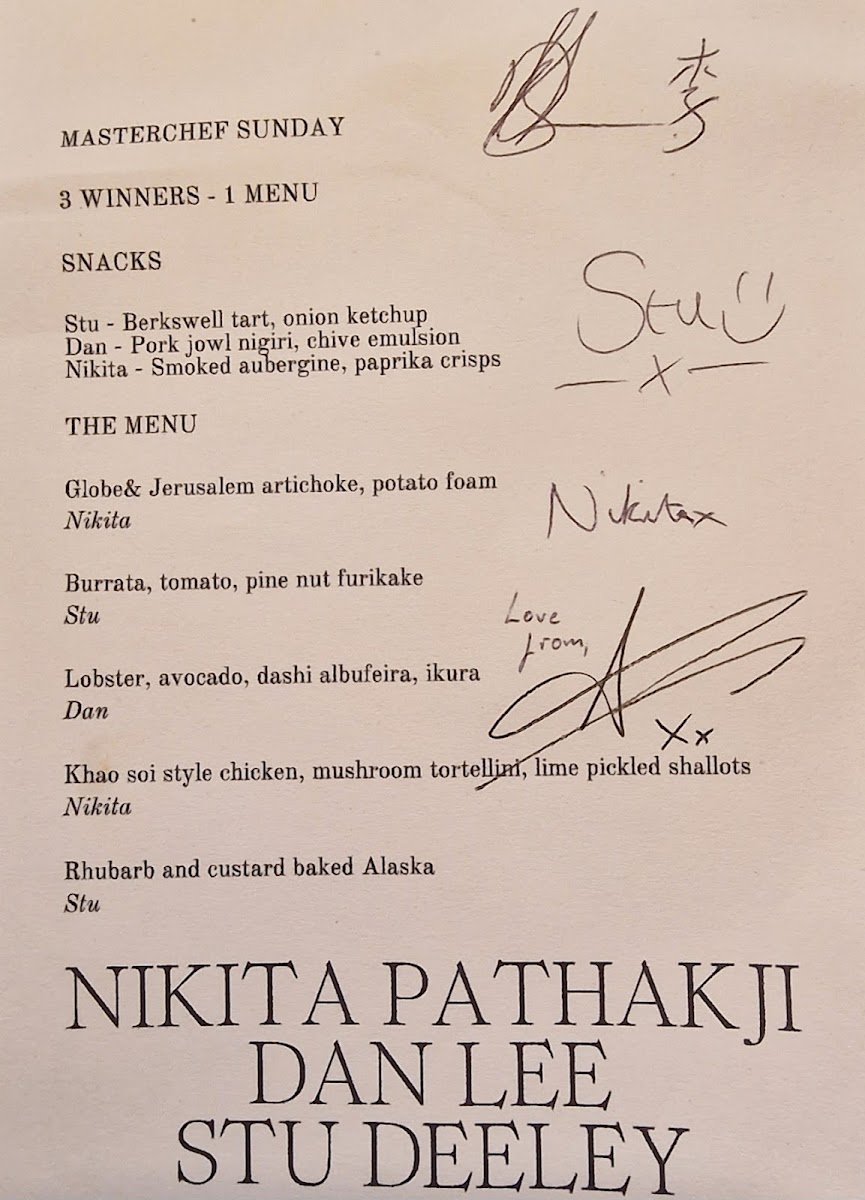 李
MASTERCHEF SUNDAY
3 WINNERS - 1 MENU
SNACKS
Stu - Berkswell tart, onion ketchup
Dan - Pork jowl nigiri, chive emulsion
Nikita - Smoked aubergine, paprika crisps
Stu
x
THE MENU
Globe& Jerusalem artichoke, potato foam
Nikita
Nikita x
Burrata, tomato, pine nut furikake
Stu
Love
from,
Lobster, avocado, dashi albufeira, ikura
Dan
Xx
Khao soi style chicken, mushroom tortellini, lime pickled shallots
Nikita
Rhubarb and custard baked Alaska
Stu
NIKITA PATHAKJI
DAN LEE
STU DEELEY